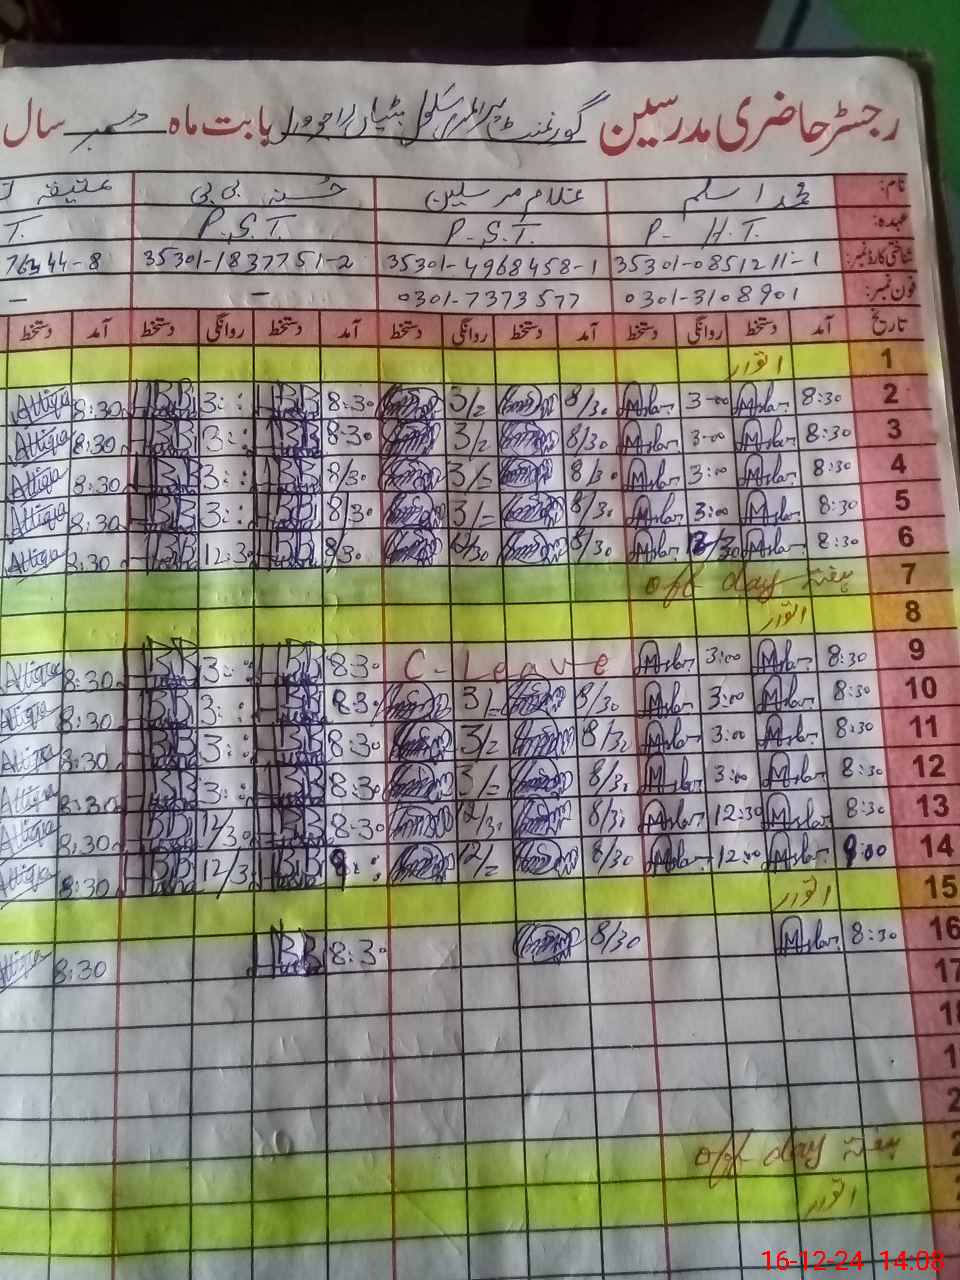 رجسٹر حاضری مدرسین گورنمنٹ پرائمری سکول بابت ماہ دسمبر سال
نام: محمد اسلم غلام مرسلین حسنہ بی بی عتیقہ
عہدہ: P. H.T. P.S.T. P.S.T. T.
شناختی کارڈ نمبر: 35301-0851211-1 35301-4968458-1 35301-1837751-2 44-8
فون نمبر: 0301-3108901 0301-7373577 — —
تاریخ آمد دستخط روانگی دستخط آمد دستخط روانگی دستخط آمد دستخط روانگی دستخط آمد دستخط
1 اتوار
2 8:30 Aslam 3:00 Aslam 8/30 3/= 8:30 HBB 3:: HBB 8:30 Attiqa
3 8:30 Aslam 3:00 Aslam 8/30 3/= 8:30 HBB 3:: HBB 8:30 Attiqa
4 8:30 Aslam 3:00 Aslam 8/30 3/= 8/30 HBB 3:: HBB 8:30 Attiqa
5 8:30 Aslam 3:00 Aslam 8/30 3/= 8/30 HBB 3:: HBB 8:30 Attiqa
6 8:30 Aslam Aslam 8/30 12/30 8/30 HBB 12:30 HBB 8:30 Attiqa
7 ہفتہ off day
8 اتوار
9 8:30 Aslam 3:00 Aslam C-Leave 8:30 HBB 3:: HBB 8:30 Attiqa
10 8:30 Aslam 3:00 Aslam 8/30 3/= 8:30 HBB 3:: HBB 8:30 Attiqa
11 8:30 Aslam 3:00 Aslam 8/30 3/= 8:30 HBB 3:: HBB 8:30 Attiqa
12 8:30 Aslam 3:00 Aslam 8/30 3/= 8:30 HBB 3:: HBB 8:30 Attiqa
13 8:30 Aslam 12:30 Aslam 8/30 12/30 8:30 HBB 12/30 HBB 8:30 Attiqa
14 9:00 Aslam 12:00 Aslam 8/30 12/= HBB 12/30 HBB 8:30 Attiqa
15 اتوار
16 8:30 Aslam 8/30 8:30 HBB 8:30 Attiqa
17
ہفتہ off day
اتوار
16-12-24 14:08